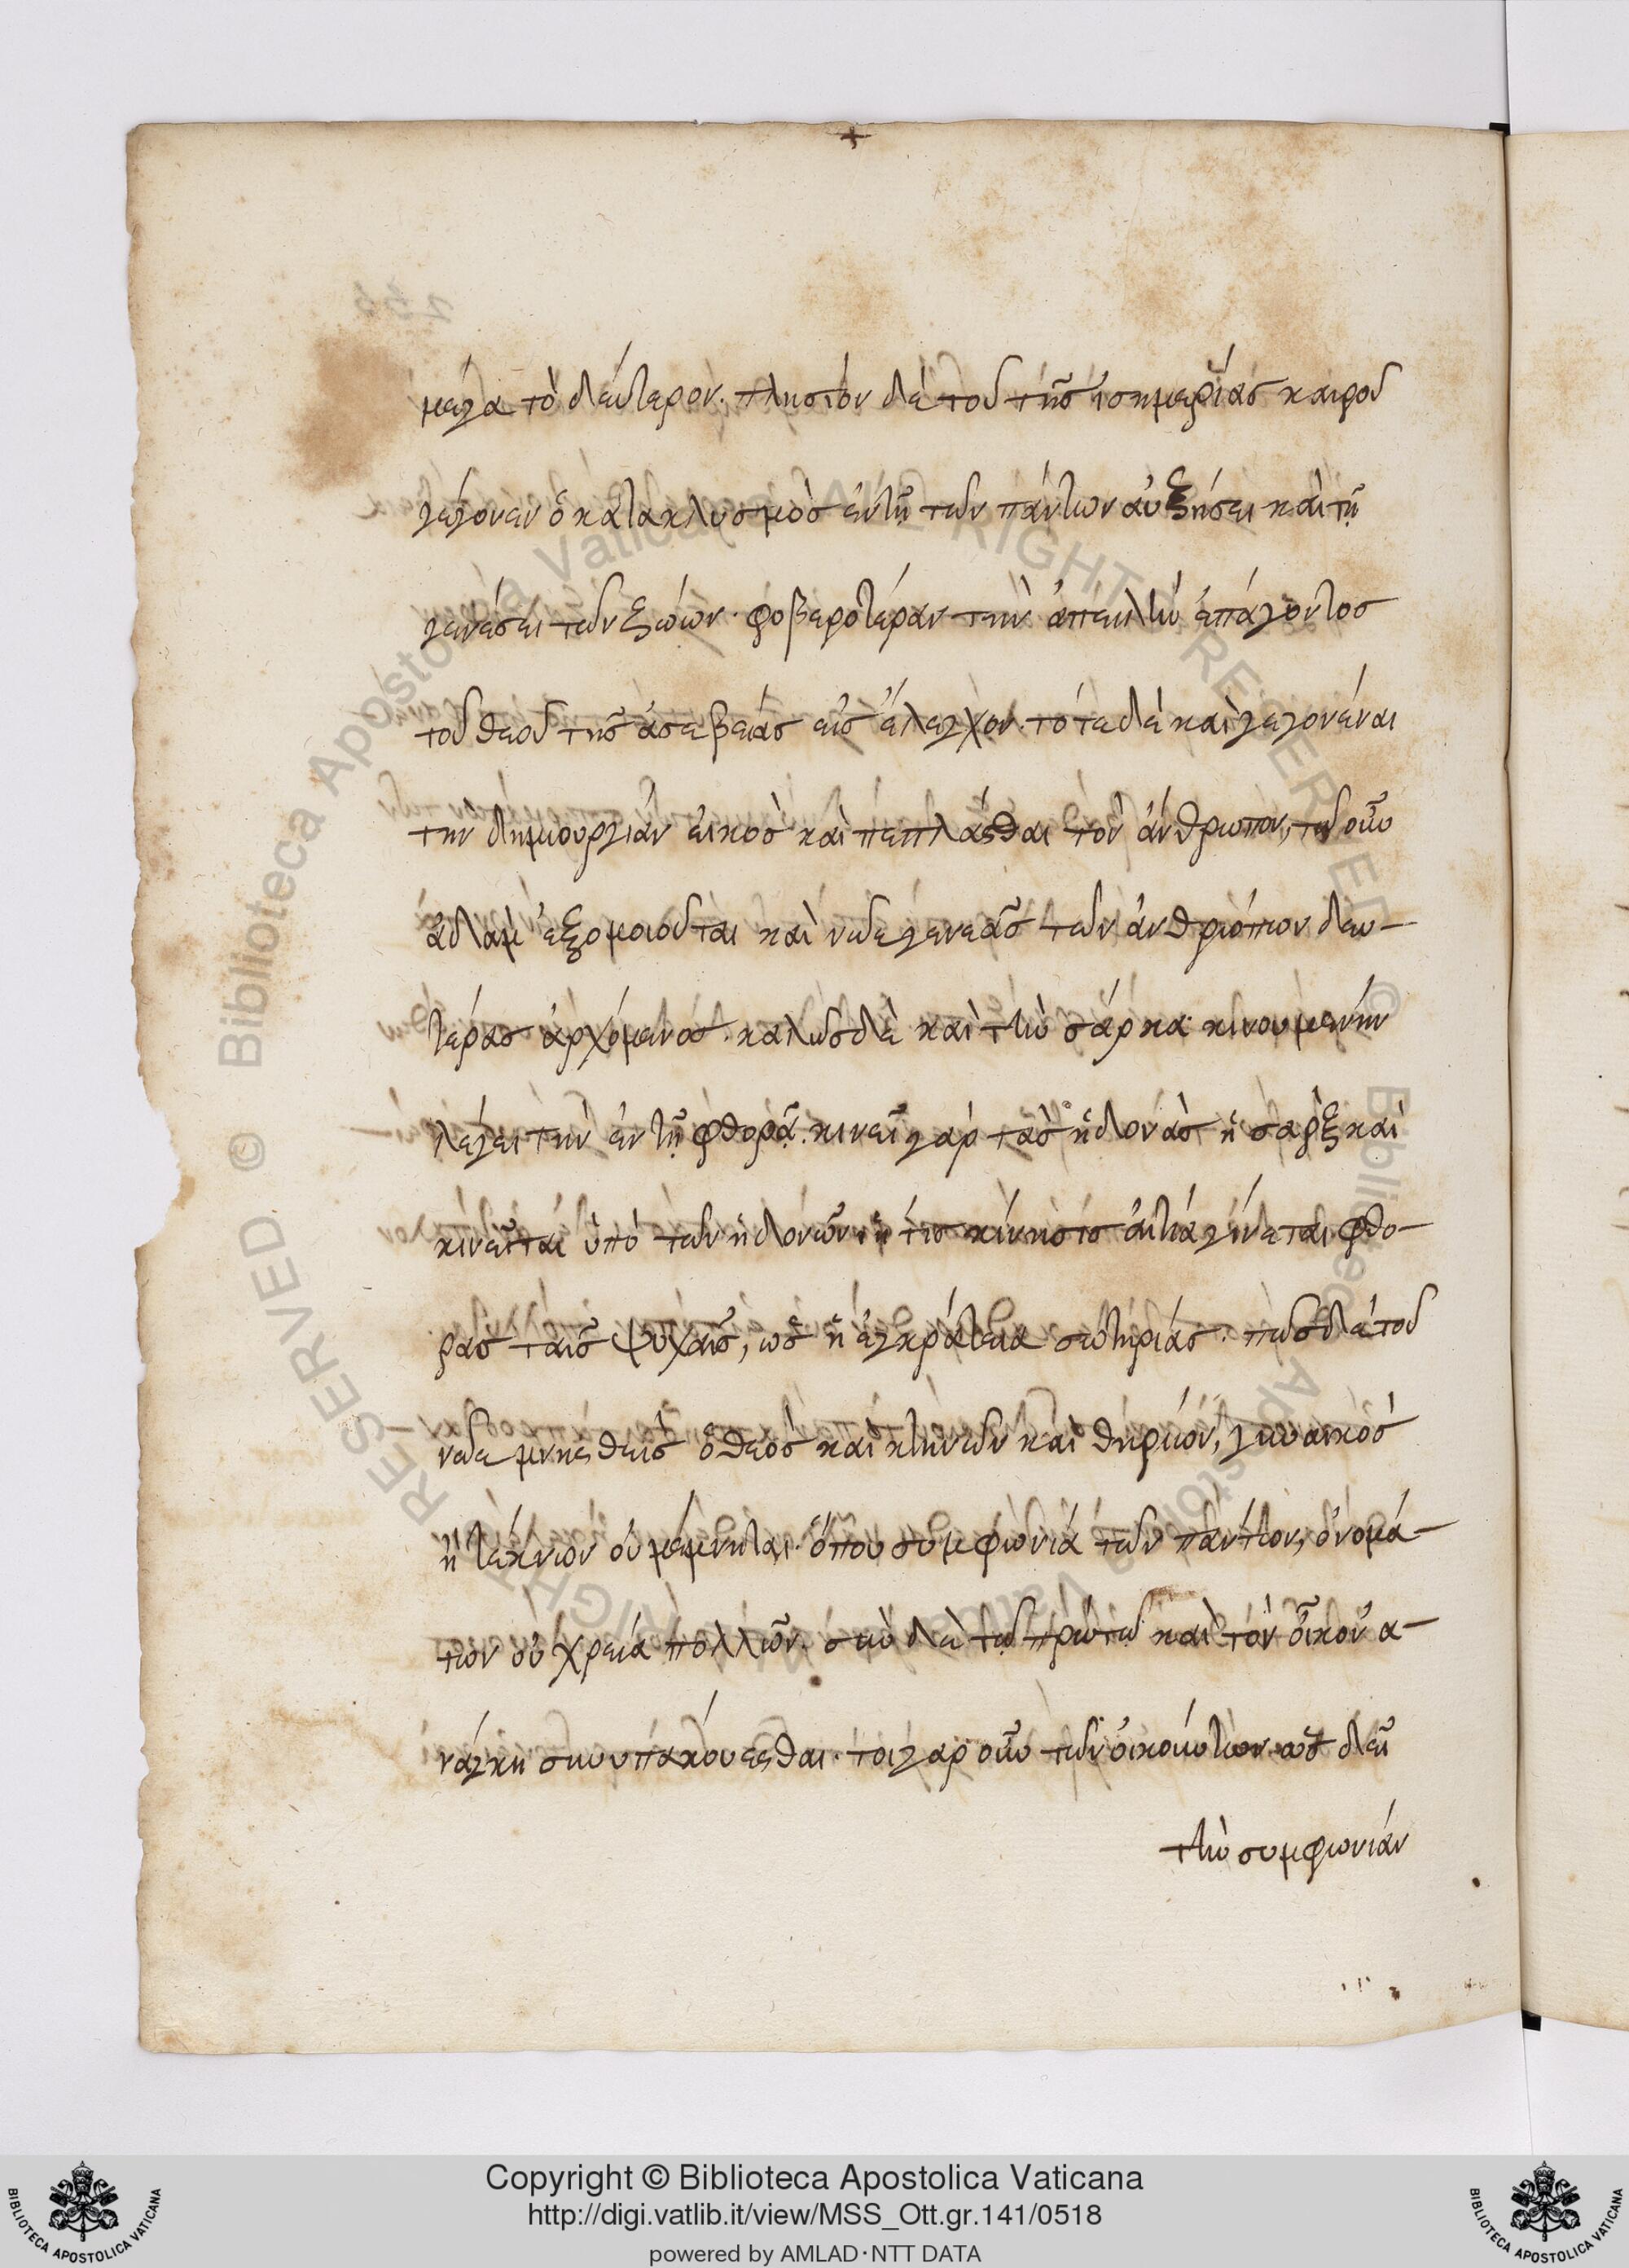 μέγα τὸ δεύτερον. πλησίον δὲ τοῦ τῆς ἰσημερίας καιροῦ
γέγονεν ὁ κατακλυσμὸς ἐν τῇ τῶν πάντων αὐξήσει καὶ τῇ
γενέσει τῶν ζώων. φοβερωτέραν τὴν ἀπειλὴν ἐπάγοντος
τοῦ θεοῦ τῆς ἀσεβείας εἰς ἔλεγχον. τότε δὲ καὶ γεγονέναι
τὴν δημιουργίαν εἰκὸς καὶ πεπλάσθαι τὸν ἄνθρωπον, τῷ οὖν
ἀδὰμ ἐξομοιοῦται καὶ νῶε γενεᾶς τῶν ἀνθρώπων δευ-
τέρας ἀρχόμενος. καλῶς δὲ καὶ τὴν σάρκα κινουμένην
λέγει τὴν ἐν τῇ φθορᾷ. κινεῖ γὰρ τὰς ἡδονὰς ἡ σὰρξ καὶ
κινεῖται ὑπὸ τῶν ἡδονῶν. ἥτις κίνησις αἰτία γίνεται φθο-
ρᾶς ταῖς ψυχαῖς, ὡς ἡ ἐγκράτεια σωτηρίας. πῶς δὲ τοῦ
νῶε μνησθεὶς ὁ θεὸς καὶ κτηνῶν καὶ θηρίων, γυναικὸς
ἢ τέκνων οὐ μέμνηται. ὅπου συμφωνία τῶν πάντων, ὀνομά-
των οὐ χρεία πολλῶν. σὺν δὲ τῷ πρώτῳ καὶ τὸν οἶκον ἀ-
νάγκη συνυπακούεσθαι. τοιγαροῦν τῶν οἰκούντων ὡς δεῖ
τὴν συμφωνίαν
Copyright © Biblioteca Apostolica Vaticana
http://digi.vatlib.it/view/MSS_Ott.gr.141/0518
powered by AMLAD·NTT DATA